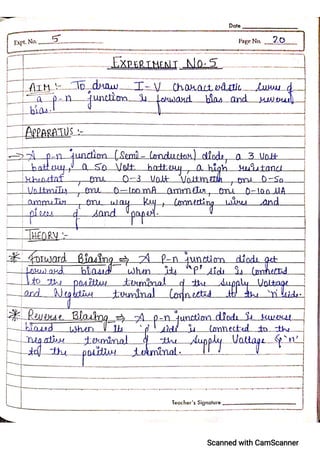 Date
Expt. No. 5
Page No. 20
EXPERIMENT NO. 5
AIM :- To draw I-V characteristic curve of
a p-n junction in forward bias and reverse
bias.
APPARATUS :-
→ A p-n junction (Semi-Conductor) diode, a 3 Volt
battery, a 50 Volt battery, a high resistance
rheostat, one 0-3 Volt Voltmeter, one 0-50
Voltmeter, one 0-100 mA ammeter, one 0-100 μA
ammeter, one way key, connecting wires and
pieces of sand paper.
THEORY :-
* Forward Biasing ⇒ A p-n junction diode get
forward biased when its "p" side is connected
to the positive terminal of the supply Voltage
and Negative terminal connected to the 'n' side.
* Reverse Biasing ⇒ A p-n junction diode is reverse
biased when its 'p' side is connected to the
negative terminal of the supply Voltage & 'n'
to the positive terminal.
Teacher's Signature
Scanned with CamScanner